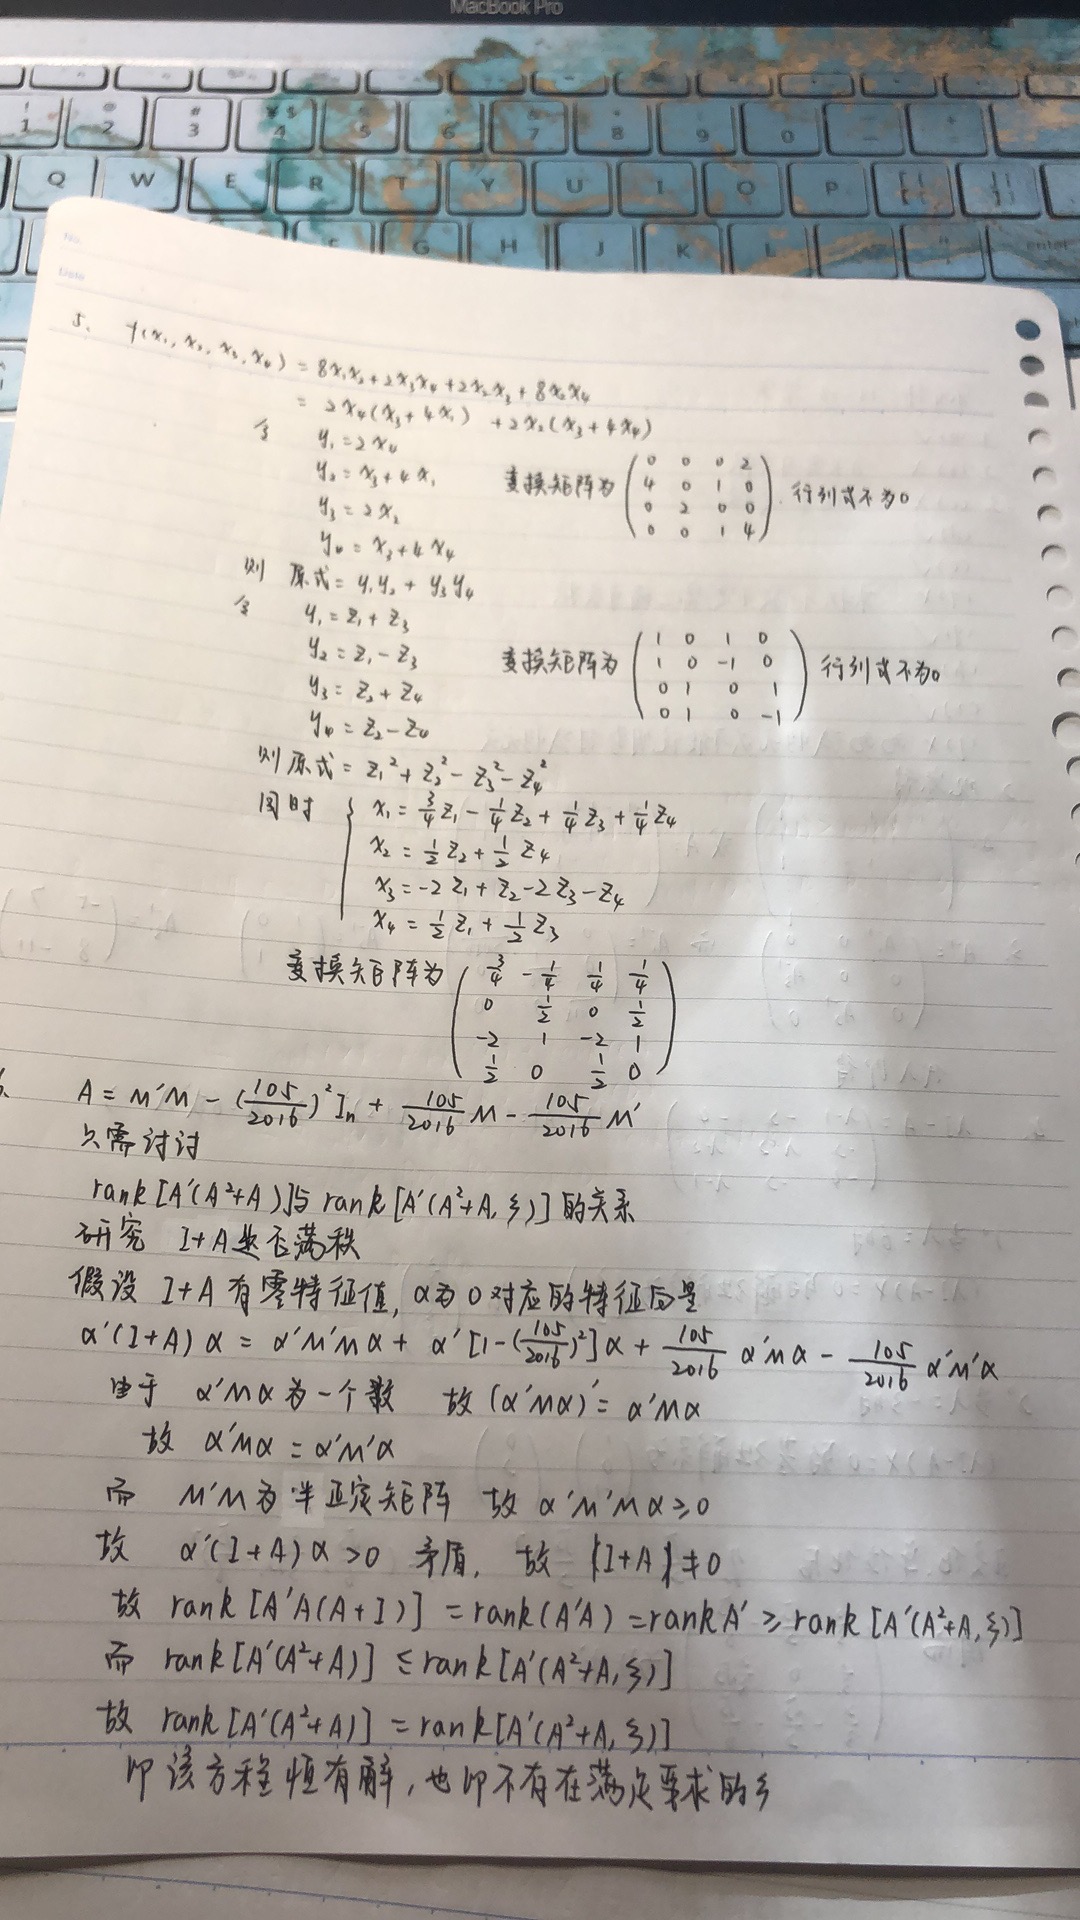 MacBook Pro
! 1 @ 2 # 3 ¥ $ 4 5 6 7 8 9 0
Q W E R T Y U I O P { [ } ]
G H J K L enter
No.
Date
5. f(x₁, x₂, x₃, x₄) = 8x₁x₂ + 2x₃x₄ + 2x₂x₃ + 8x₂x₄
= 2x₄(x₃ + 4x₁) + 2x₂(x₃ + 4x₄)
令 y₁ = 2x₄
y₂ = x₃ + 4x₁
y₃ = 2x₂
y₄ = x₃ + 4x₄
变换矩阵为 (0 0 0 2
4 0 1 0
0 2 0 0
0 0 1 4) 行列式不为0
则 原式 = y₁y₂ + y₃y₄
令 y₁ = z₁ + z₃
y₂ = z₁ - z₃
y₃ = z₂ + z₄
y₄ = z₂ - z₄
变换矩阵为 (1 0 1 0
1 0 -1 0
0 1 0 1
0 1 0 -1) 行列式不为0
则原式 = z₁² + z₂² - z₃² - z₄²
同时 { x₁ = 3/4 z₁ - 1/4 z₂ + 1/4 z₃ + 1/4 z₄
x₂ = 1/2 z₂ + 1/2 z₄
x₃ = -2z₁ + z₂ - 2z₃ - z₄
x₄ = 1/2 z₁ + 1/2 z₃
变换矩阵为 (3/4 -1/4 1/4 1/4
0 1/2 0 1/2
-2 1 -2 1
1/2 0 1/2 0)
A = M'M - (105/2016)² Iₙ + 105/2016 M - 105/2016 M'
只需讨讨
rank[A'(A²+A)]与 rank[A'(A²+A, ξ)] 的关系
研究 I+A是否满秩
假设 I+A 有零特征值, α为0对应的特征向量
α'(I+A)α = α'M'Mα + α'[1-(105/2016)²]α + 105/2016 α'Mα - 105/2016 α'M'α
由于 α'Mα为一个数 故(α'Mα)' = α'Mα
故 α'Mα = α'M'α
而 M'M为半正定矩阵 故 α'M'Mα ≥ 0
故 α'(I+A)α > 0 矛盾, 故 |I+A| ≠ 0
故 rank[A'A(A+I)] = rank(A'A) = rank A' ≥ rank[A'(A²+A, ξ)]
而 rank[A'(A²+A)] ≤ rank[A'(A²+A, ξ)]
故 rank[A'(A²+A)] = rank[A'(A²+A, ξ)]
即该方程恒有解, 也即不存在满足要求的ξ